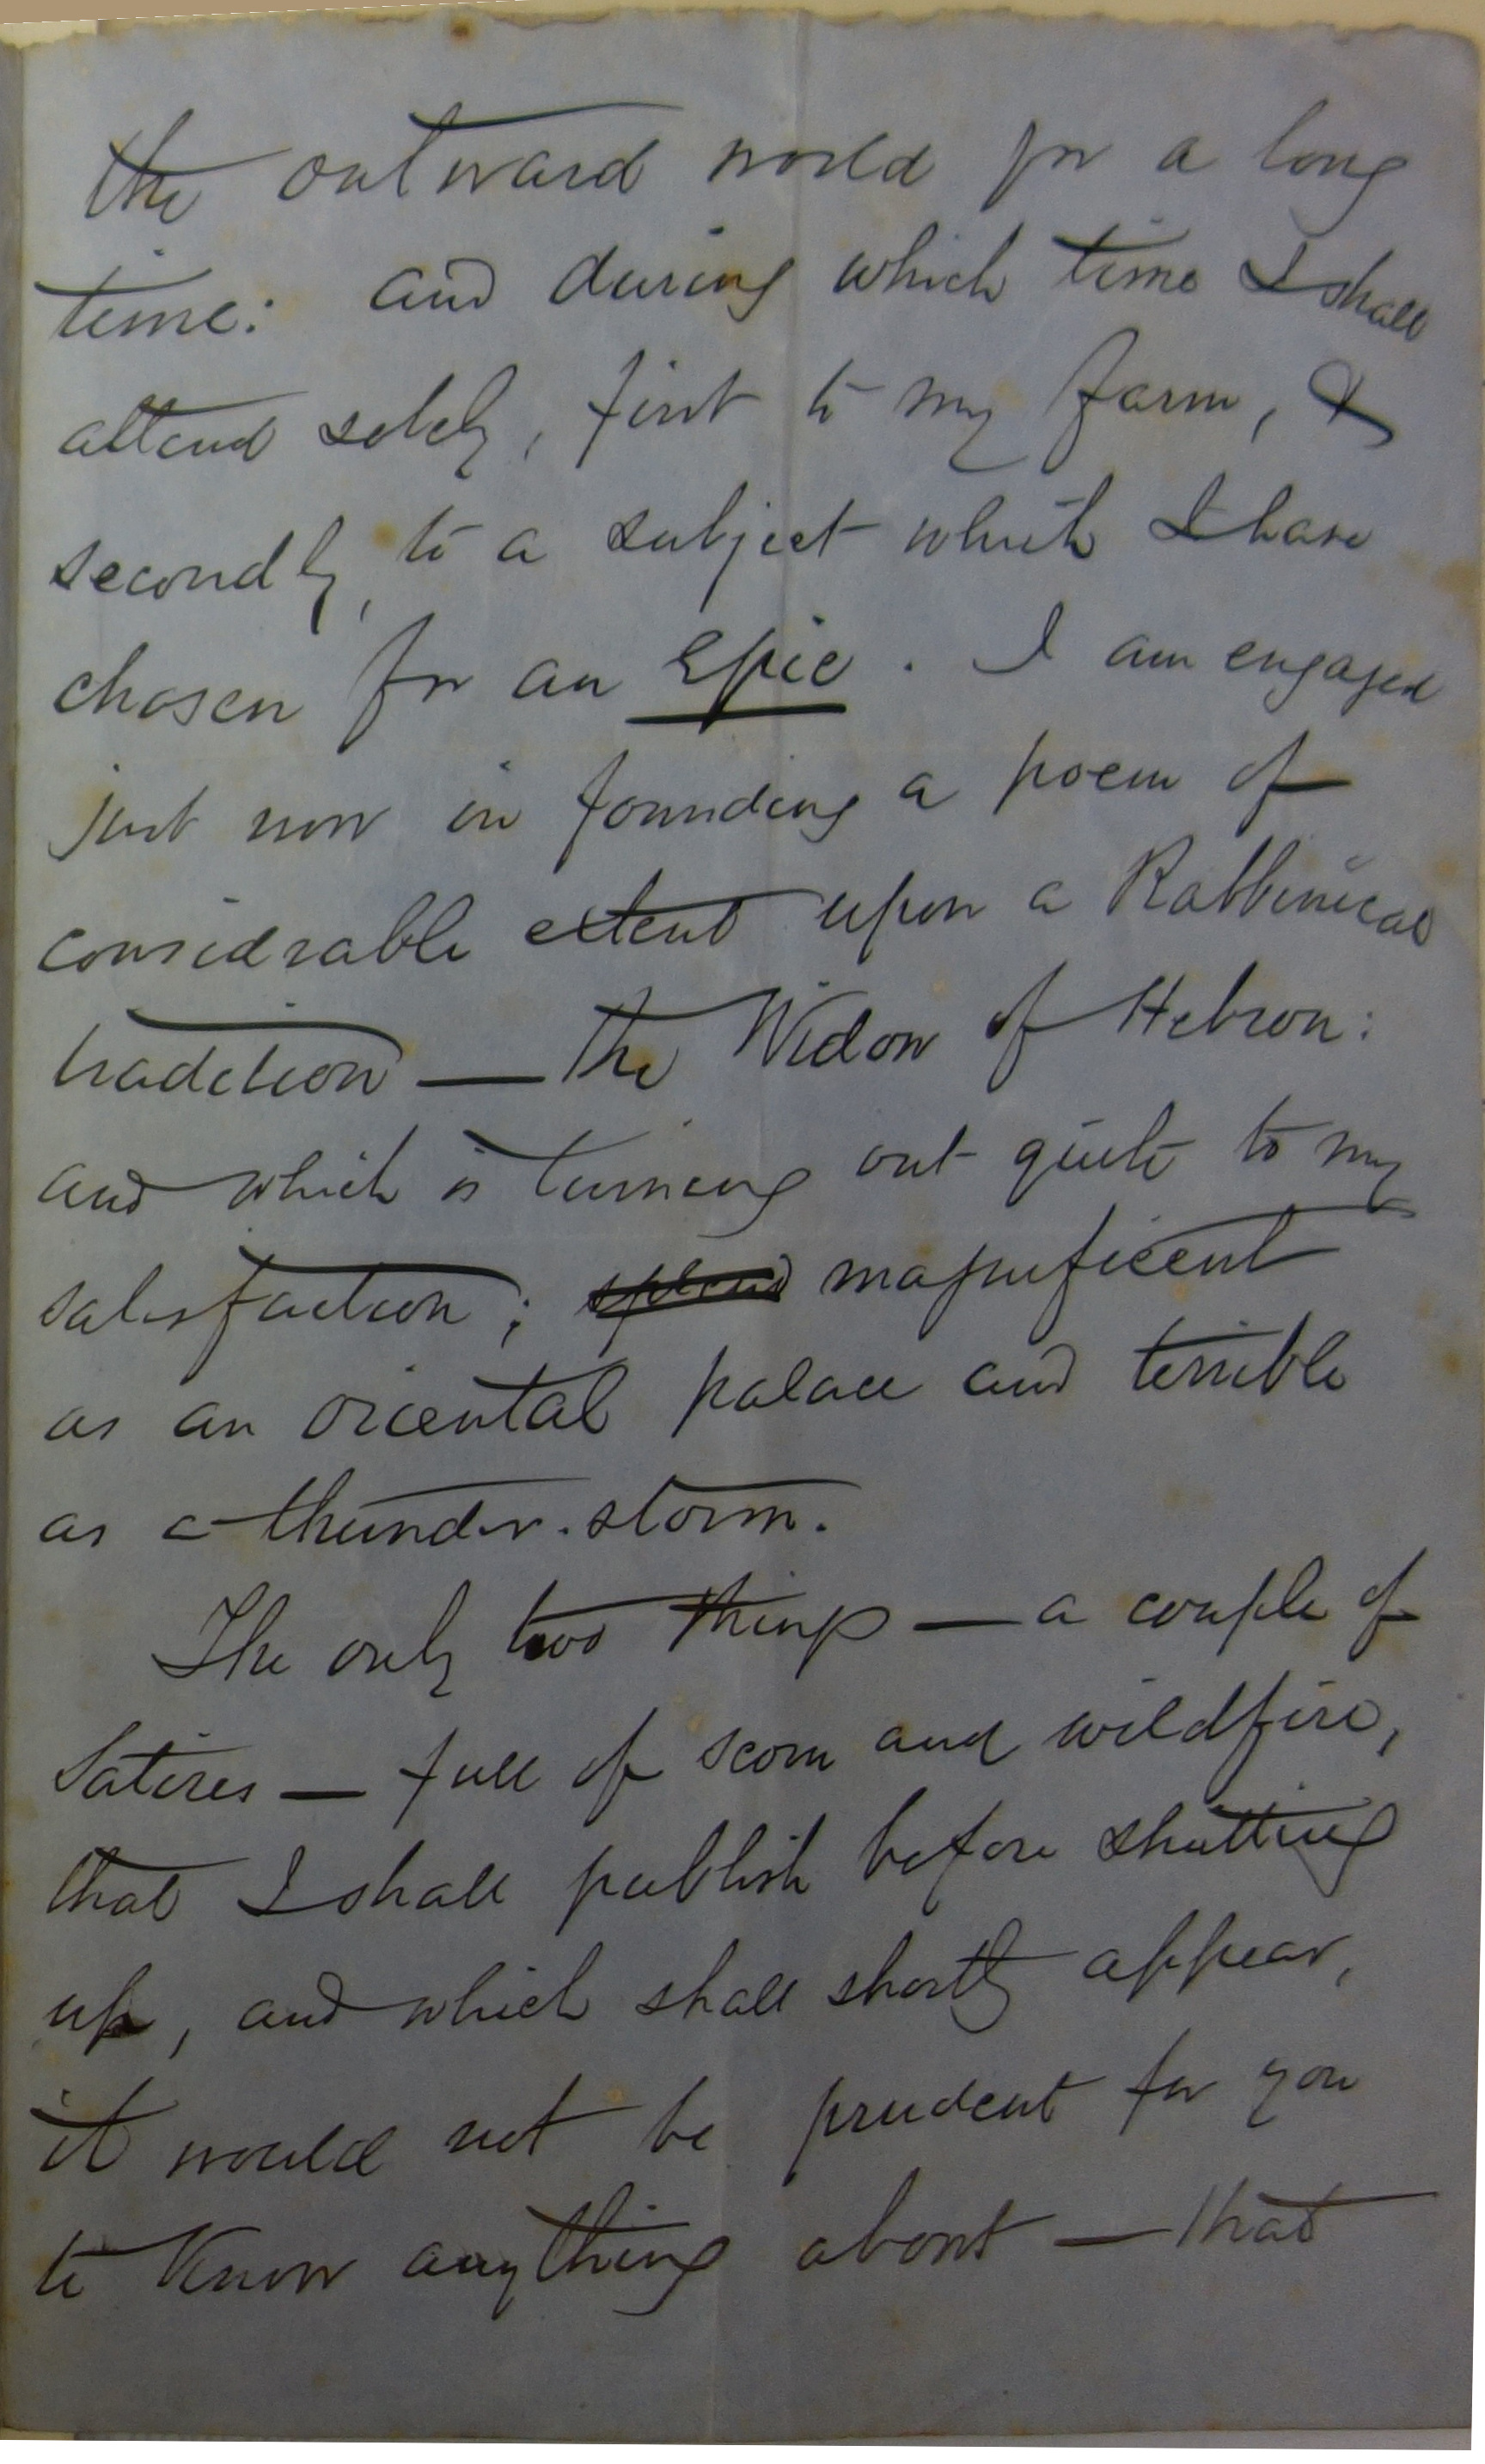 the outward world for a long
time: and during which time I shall
attend solely, first to my farm, &
secondly, to a subject which I have
chosen for an Epic. I am engaged
just now in founding a poem of
considerable extent upon a Rabbinical
tradition — The Widow of Hebron:
and which is turning out quite to my
satisfaction; splend magnificent
as an oriental palace and terrible
as a thunder-storm.
The only two things — a couple of
Satires — full of scorn and wildfire,
that I shall publish before shutting
up, and which shall shortly appear,
it would not be prudent for you
to know anything about — that